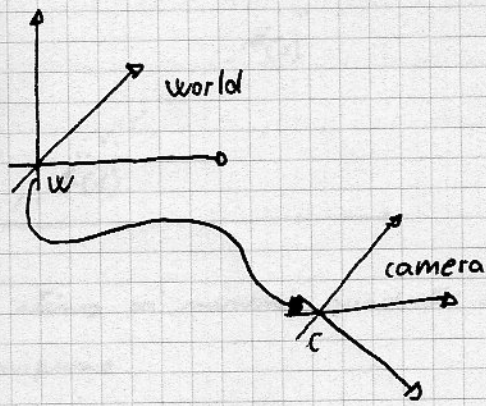 world
W
camera
C